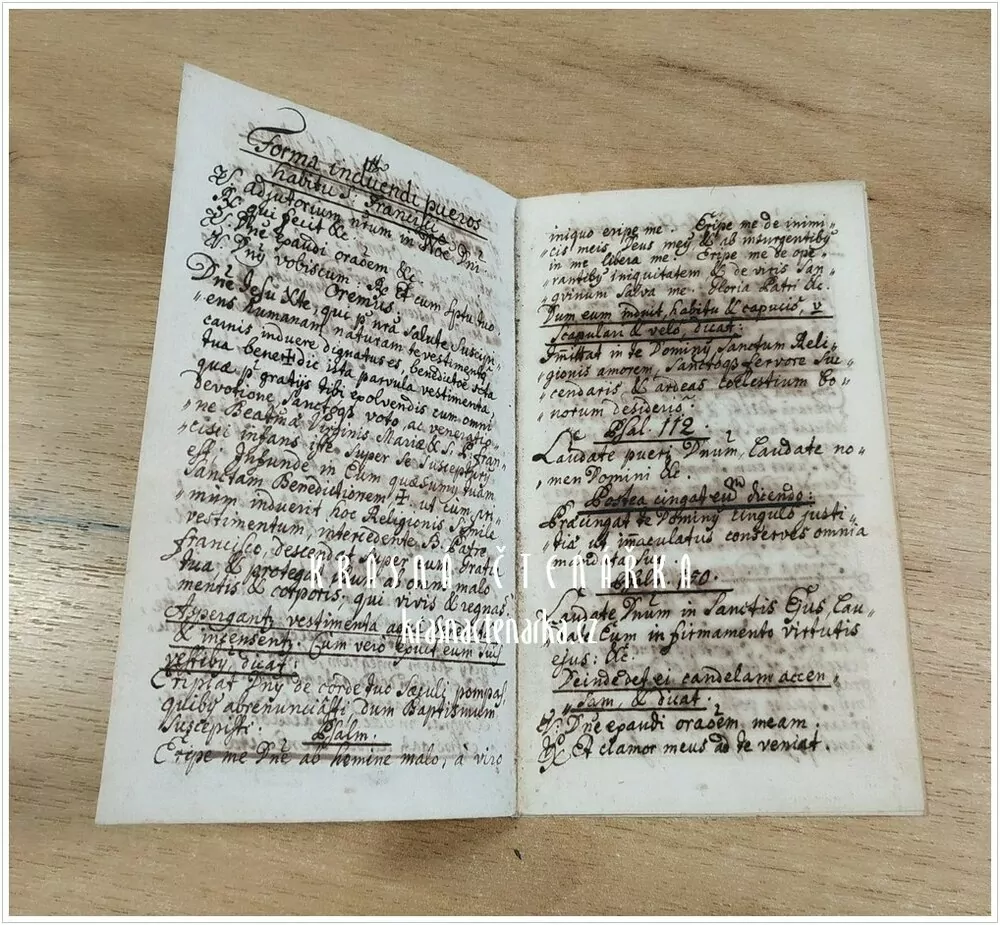 Forma induendi pueros
habitu S. Francisci.
V. adjutorium nrum in Noe Dni
R. qui fecit &c.
V. Dne exaudi oraoem &c.
V. Dnj vobiscum. R. Et cum sptu tuo
Oremus.
Dne Jesu Xte, qui pr nrã salute suscipi„
„ens humanam naturam te vestimento
carnis induere dignatus es, benedictõe
tua bene✝dic ista parvula vestimenta,
quæ pr gratijs tibi exolvendis cum omni
devotione, Sanctoq3 voto, ac veneratio„
„ne Beatmã Virginis Mariæ & S. P. Fran„
„cisci infans iste super se suscepturq
est; Infunde in Eum quæsumq tuam
Sanctam Benedictionem ✝. ut cum pri„
„mum induerit hoc Religionis simile
vestimentum, intercedente B. Patre
Francisco, descendat super eum gratia
tua, & protegat eum ab omni malo
mentis & corporis; qui vivis & regnas.
Aspergantr vestimenta
& insensentr. Cum vero exuit eum suis
vestibq dicat:
Eripiat Dnq de corde tuo sæculi pompas,
quibq abrenunciasti dum Baptismum
suscepisti. Psalm.
Eripe me Dne ab homine malo, à viro
iniquo eripe me. Eripe me de inimi„
„cis meis, Deus meq & ab insurgentibq
in me libera me. Eripe me de ope„
„rantibq iniquitatem & de viris san„
„gvinum salva me. Gloria Patri &c.
Dum eum induit habitu & capucio, v
Scapulari & velo, dicat:
Imittat in te Dominq Sanctum Reli„
„gionis amorem, Sanctoq3 fervore suc„
„cendaris & ardeas coelestium bo„
„norum desiderio.
Psal. 112.
Laudate pueri Dnum, laudate no„
„men Domini &c.
Postea cingat eum dicendo:
Præcingat te Dominq cingulo justi„
„tiæ, ut immaculatus conserves omnia
mandata
Psalm. 150.
Laudate Dnum in Sanctis Ejus, lau„
Eum in firmamento virtutis
ejus: &c.
Deinde det ei candelam accen„
„sam, & dicat.
V. Dne exaudi oraoem meam.
R. Et clamor meus ad te veniat.
KRÁSNÁ ČTENÁŘKA
krasnactenarka.cz